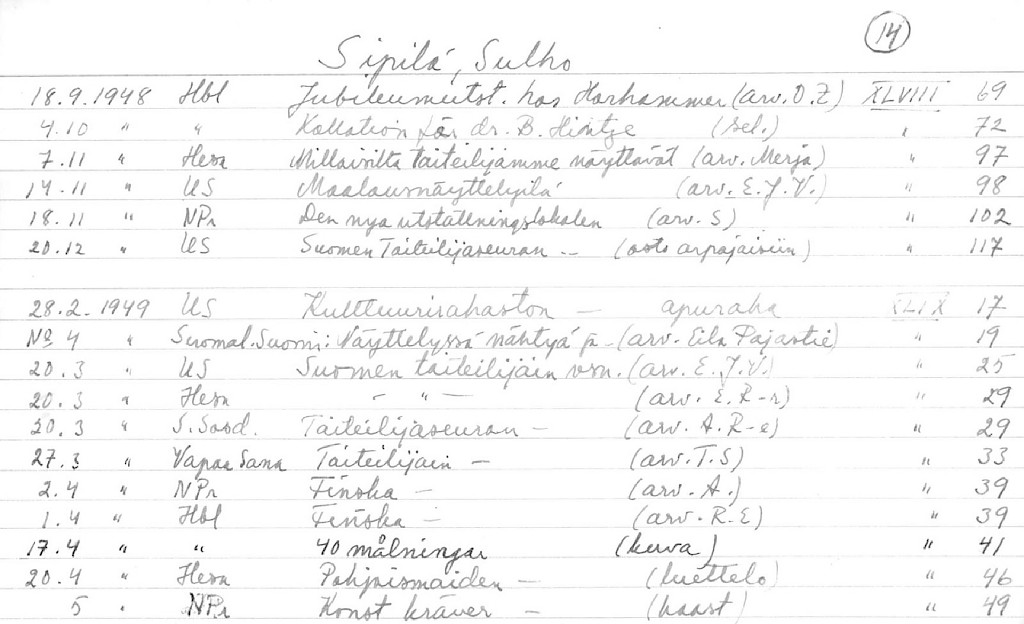 14
Sipilä, Sulho
18.9.1948 Hbl Jubileumutst. hos Hörhammer (arv. O.Z) XLVIII 69
4.10 " " Kollation för dr. B. Hintze (sel.) " 72
7.11 " Hesa Millaisilta taiteilijamme näyttävät (arv. Merja) " 97
14.11 " US Maalausnäyttelyitä (arv. E.J.V.) " 98
18.11 " NPr Den nya utställningslokalen (arv. S) " 102
20.12 " US Suomen Taiteilijaseuran -- (osto arpajaisiin) " 117
28.2. 1949 US Kulttuurirahaston — apuraha XLIX 17
No 4 " Suomal. Suomi: Näyttelyssä nähtyä ja - (arv. Eila Pajastie) " 19
20.3 " US Suomen taiteilijain vsn. (arv. E.J.V.) " 25
20.3 " Hesa - " — (arv. E. R-r) " 29
20.3 " S. Sosd. Taiteilijaseuran — (arv. A. R-e) " 29
27.3 " Vapaa Sana Taiteilijain — (arv. T.S) " 33
2.4 " NPr Finska — (arv. A.) " 39
1.4 " Hbl Finska — (arv. R.E) " 39
17.4 " " 40 målningar (kuva) " 41
20.4 " Hesa Pohjoismaiden — (luettelo) " 46
5 " NPr Konst kräver — (haast) " 49